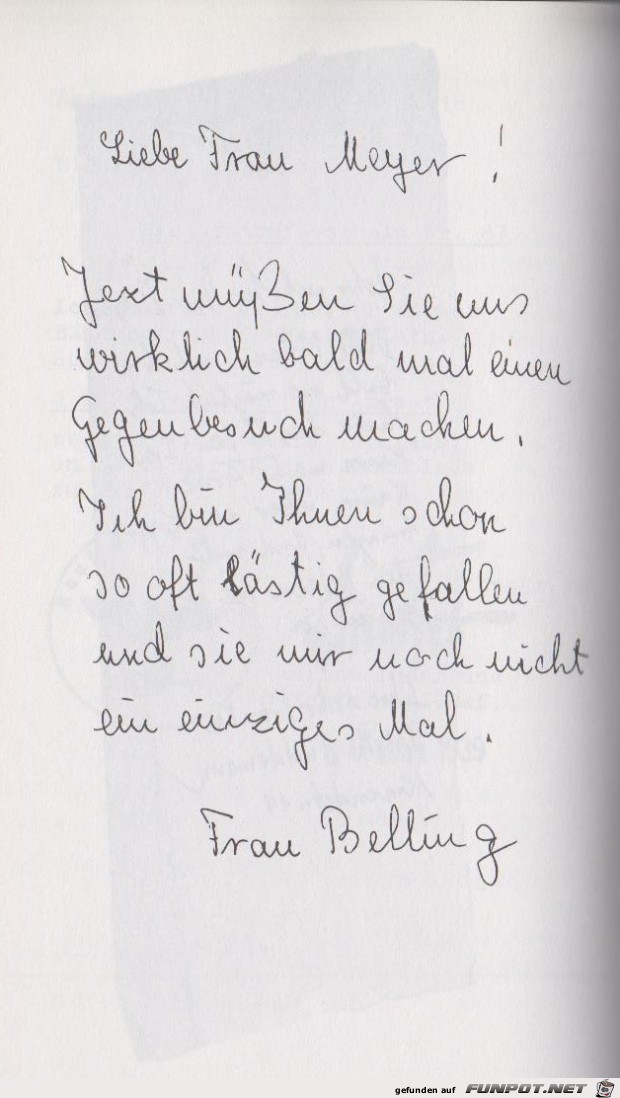 Liebe Frau Meyer!
Jezt müßen Sie uns
wirklich bald mal einen
Gegenbesuch machen.
Ich bin Ihnen schon
so oft lästig gefallen
und sie mir noch nicht
ein einziges Mal.
Frau Belling
gefunden auf FUNPOT.NET